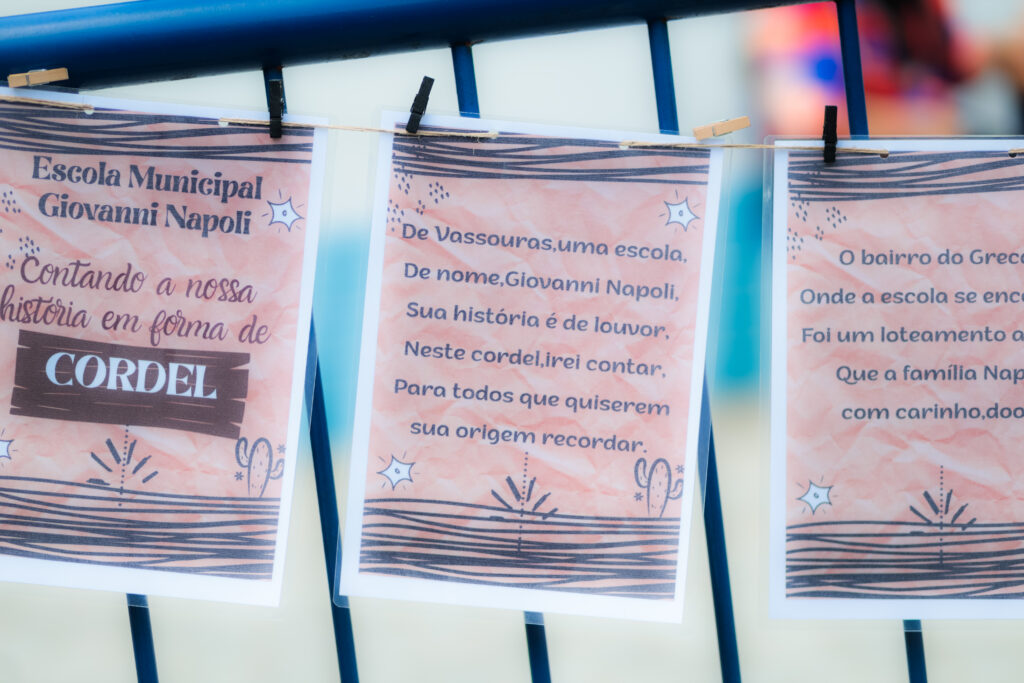 Escola Municipal
Giovanni Napoli
Contando a nossa
história em forma de
CORDEL
De Vassouras,uma escola,
De nome,Giovanni Napoli,
Sua história é de louvor,
Neste cordel,irei contar,
Para todos que quiserem
sua origem recordar.
O bairro do Grec
Onde a escola se enc
Foi um loteamento a
Que a família Nap
com carinho,doo